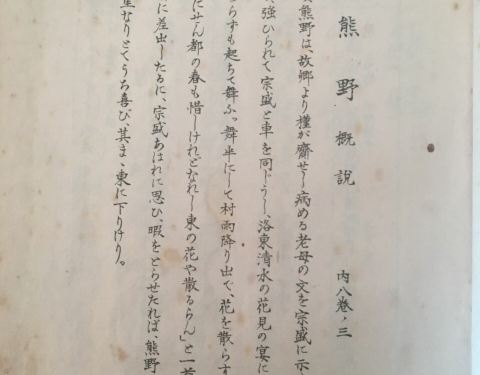 熊野概説　内八巻ノ三
熊野は、故郷より槿が齎せし病める老母の文を宗盛に示
強ひられて宗盛と車を同じうし、洛東清水の花見の宴に
らずも起ちて舞ふ。舞半にして村雨降り出で、花を散らす
にせん都の春も惜しけれどなれし東の花や散るらん」と一首
に差出したるに、宗盛あはれに思ひ、暇をとらせたれば、熊野
なりとてうち喜び、其まゝ東に下りけり。